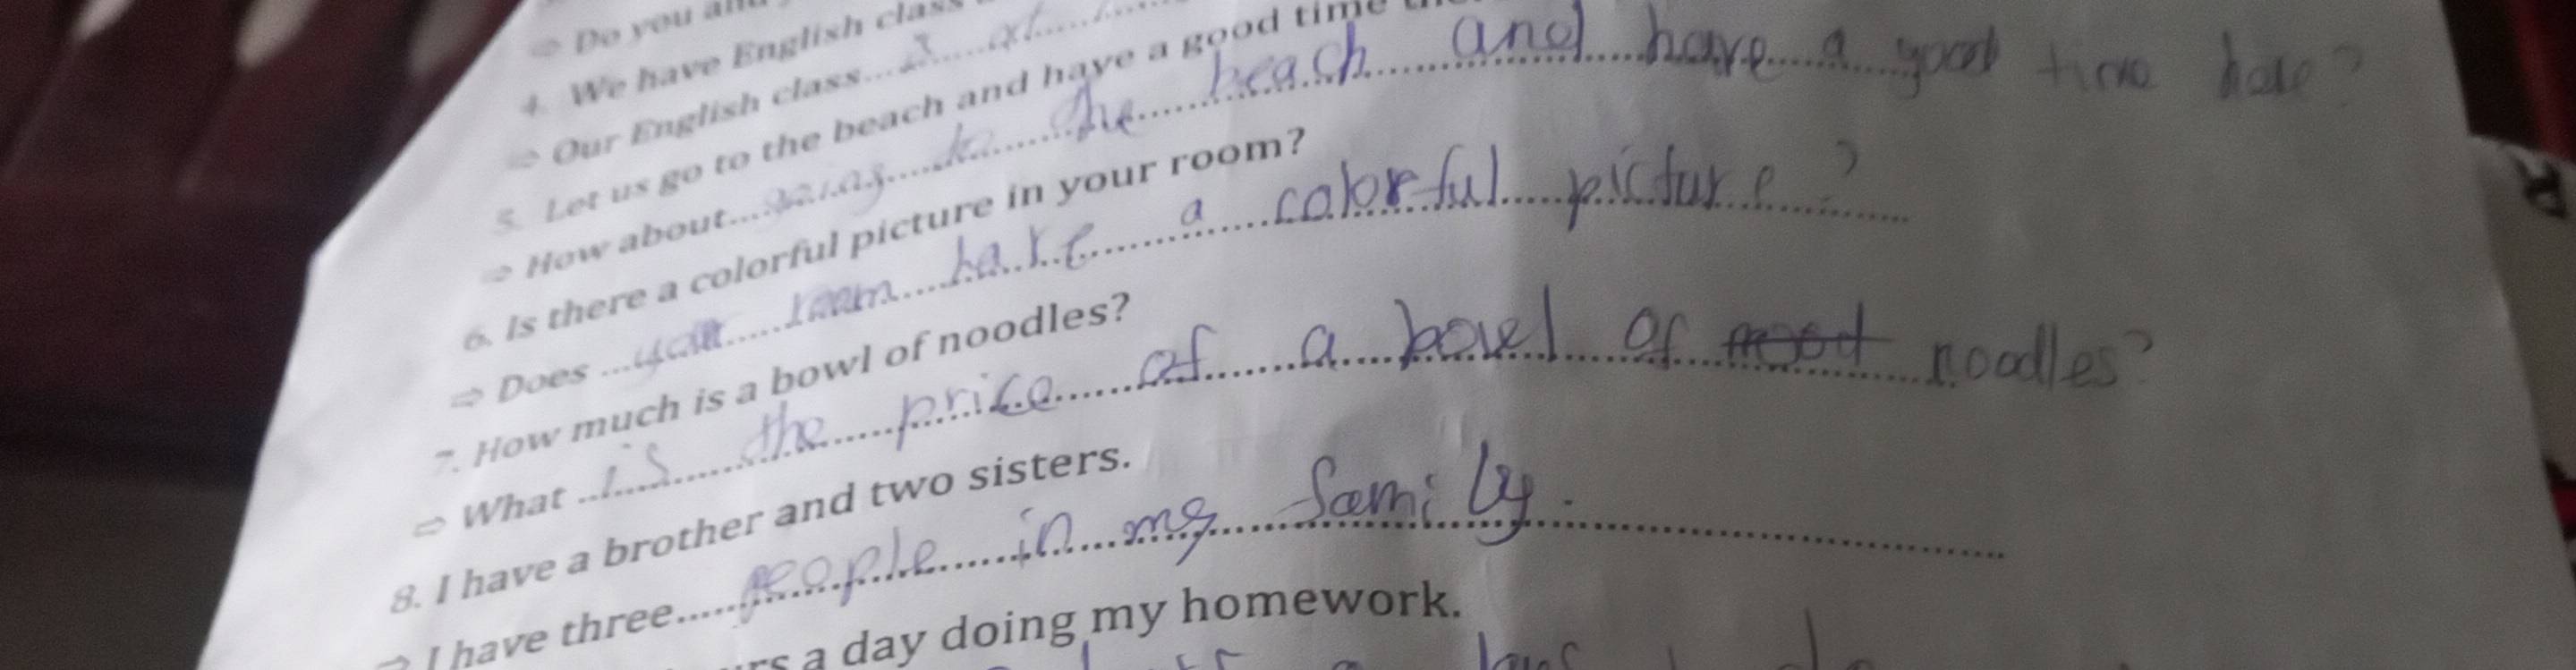 ⇨ Do you
4. We have English class
⇨ Our English class
5. Let us go to the beach and have a good time
⇨ How about going to the beach and have a good time
6. Is there a colorful picture in your room?
⇨ Does your room have a colorful picture ?
7. How much is a bowl of noodles?
⇨ What is the price of a bowl of noodles?
8. I have a brother and two sisters.
⇨ I have three people in my family.
a day doing my homework.